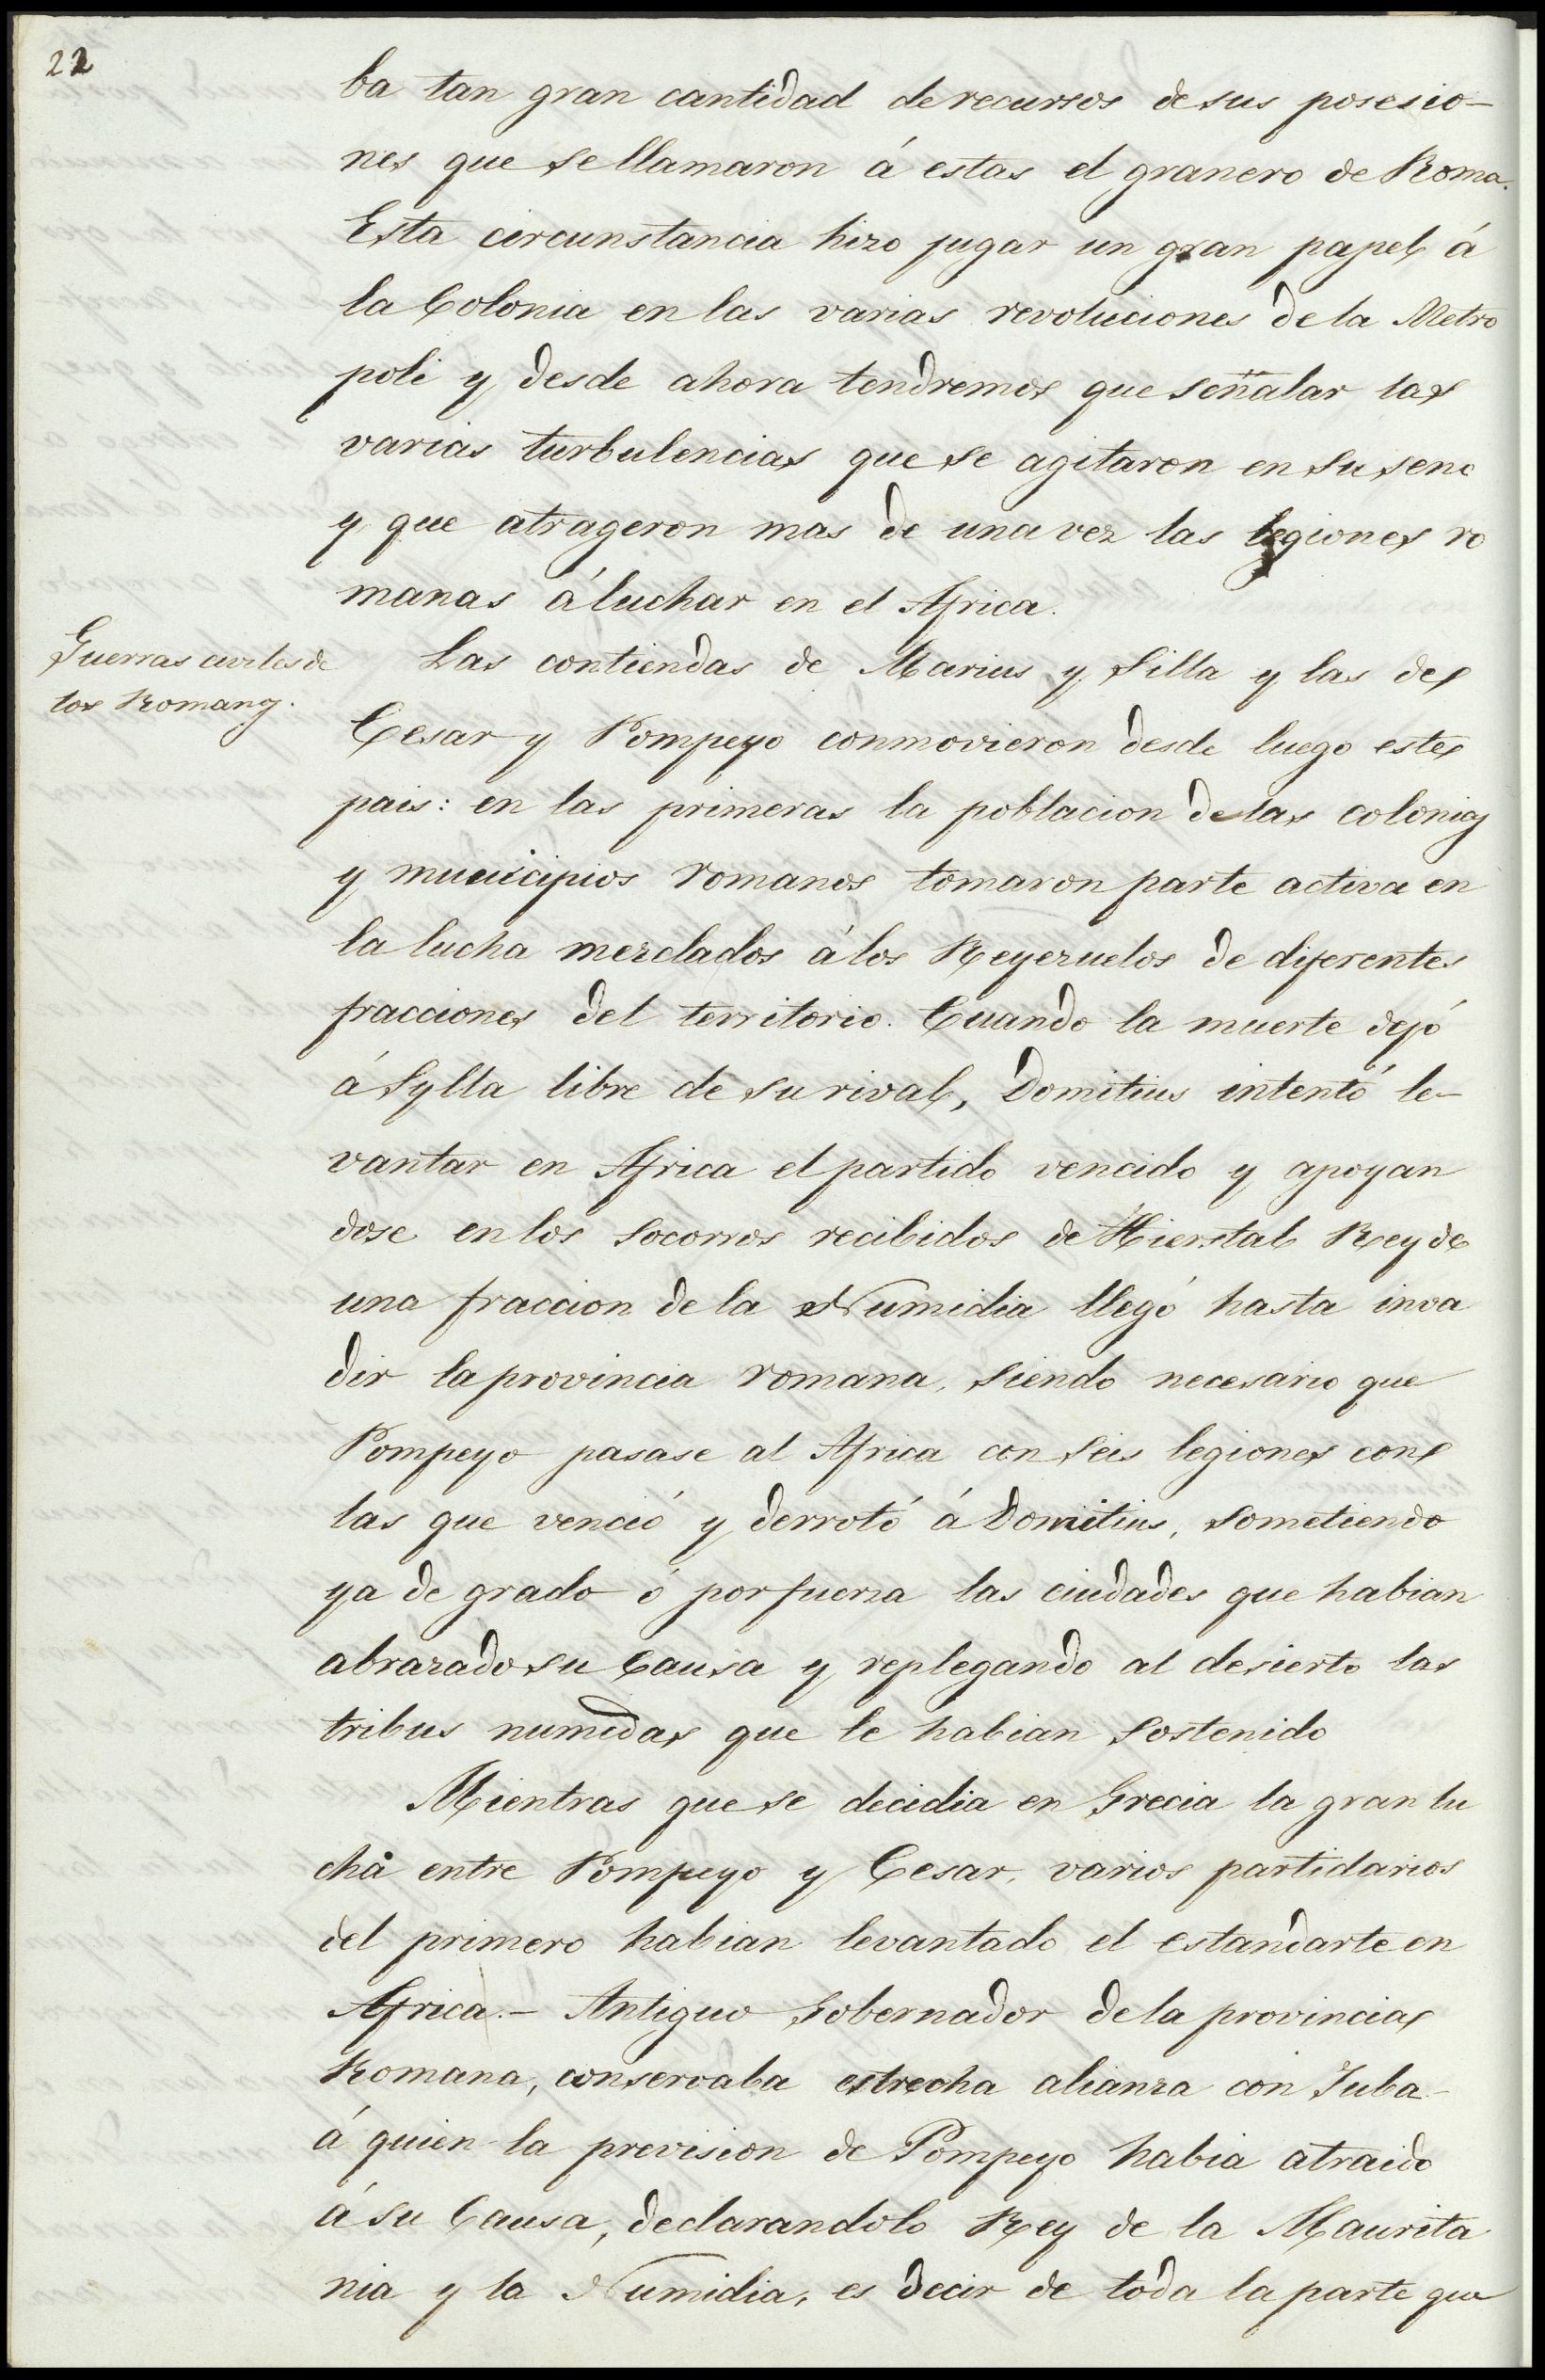 22
ba tan gran cantidad de recursos de sus posesio-
nes que se llamaron á estas el granero de Roma.
Esta circunstancia hizo jugar un gran papel á
la Colonia en las varias revoluciones de la Metro
poli y desde ahora tendremos que señalar las
varias turbulencias que se agitaron en su seno
y que atrageron mas de una vez las legiones ro
manas á luchar en el Africa.
Guerras civiles de
los Romanos.
Las contiendas de Marius y Silla y las de
Cesar y Pompeyo conmovieron desde luego este
pais: en las primeras la poblacion de las colonias
y municipios romanos tomaron parte activa en
la lucha mezclados á los Reyezuelos de diferentes
fracciones del territorio. Cuando la muerte dejó
á Sylla libre de su rival, Domitius intentó le-
vantar en Africa el partido vencido y apoyan
dose en los socorros recibidos de Hierstal Rey de
una fraccion de la Numidia llegó hasta inva
dir la provincia romana, siendo necesario que
Pompeyo pasase al Africa con seis legiones con
las que venció y derrotó á Domitius, sometiendo
ya de grado ó por fuerza las ciudades que habian
abrazado su causa y replegando al desierto las
tribus numidas que le habian sostenido
Mientras que se decidia en Grecia la gran lu
cha entre Pompeyo y Cesar, varios partidarios
del primero habian levantado el estandarte en
Africa.- Antiguo Gobernador de la provincia
Romana, conservaba estrecha alianza con Juba-
á quien la prevision de Pompeyo habia atraido
á su Causa, declarandolo Rey de la Maurita
nia y la Numidia, es decir de toda la parte que